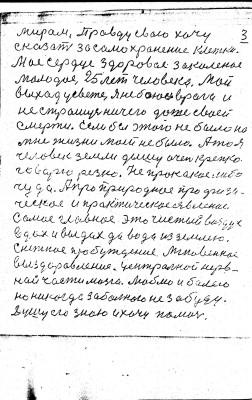 3
мирам, Правду свою хочу
сказат за сомохранение клетки.
Мое сердце здоровое закаленое
молодое, 25 лет человека. Мой
выход у света, Я не боюсь врага и
не страшус ничего даже своей
смерти. Если бы этого не было
мне жизни моей не было. А то я
человек земли дышу очен крепко
говорю резко. Не про какое либо
чудо. А про природное про физи-
ческое и практическое явление.
Самое главное это чистый воздух
вдох и выдох да вода из землею.
Снежное пробуждение. Мгновенное
выздоравление. централной нерв-
ной части мозга. Люблю и болею
но никогда за болного не забуду.
Душу его знаю и хочу помоч.